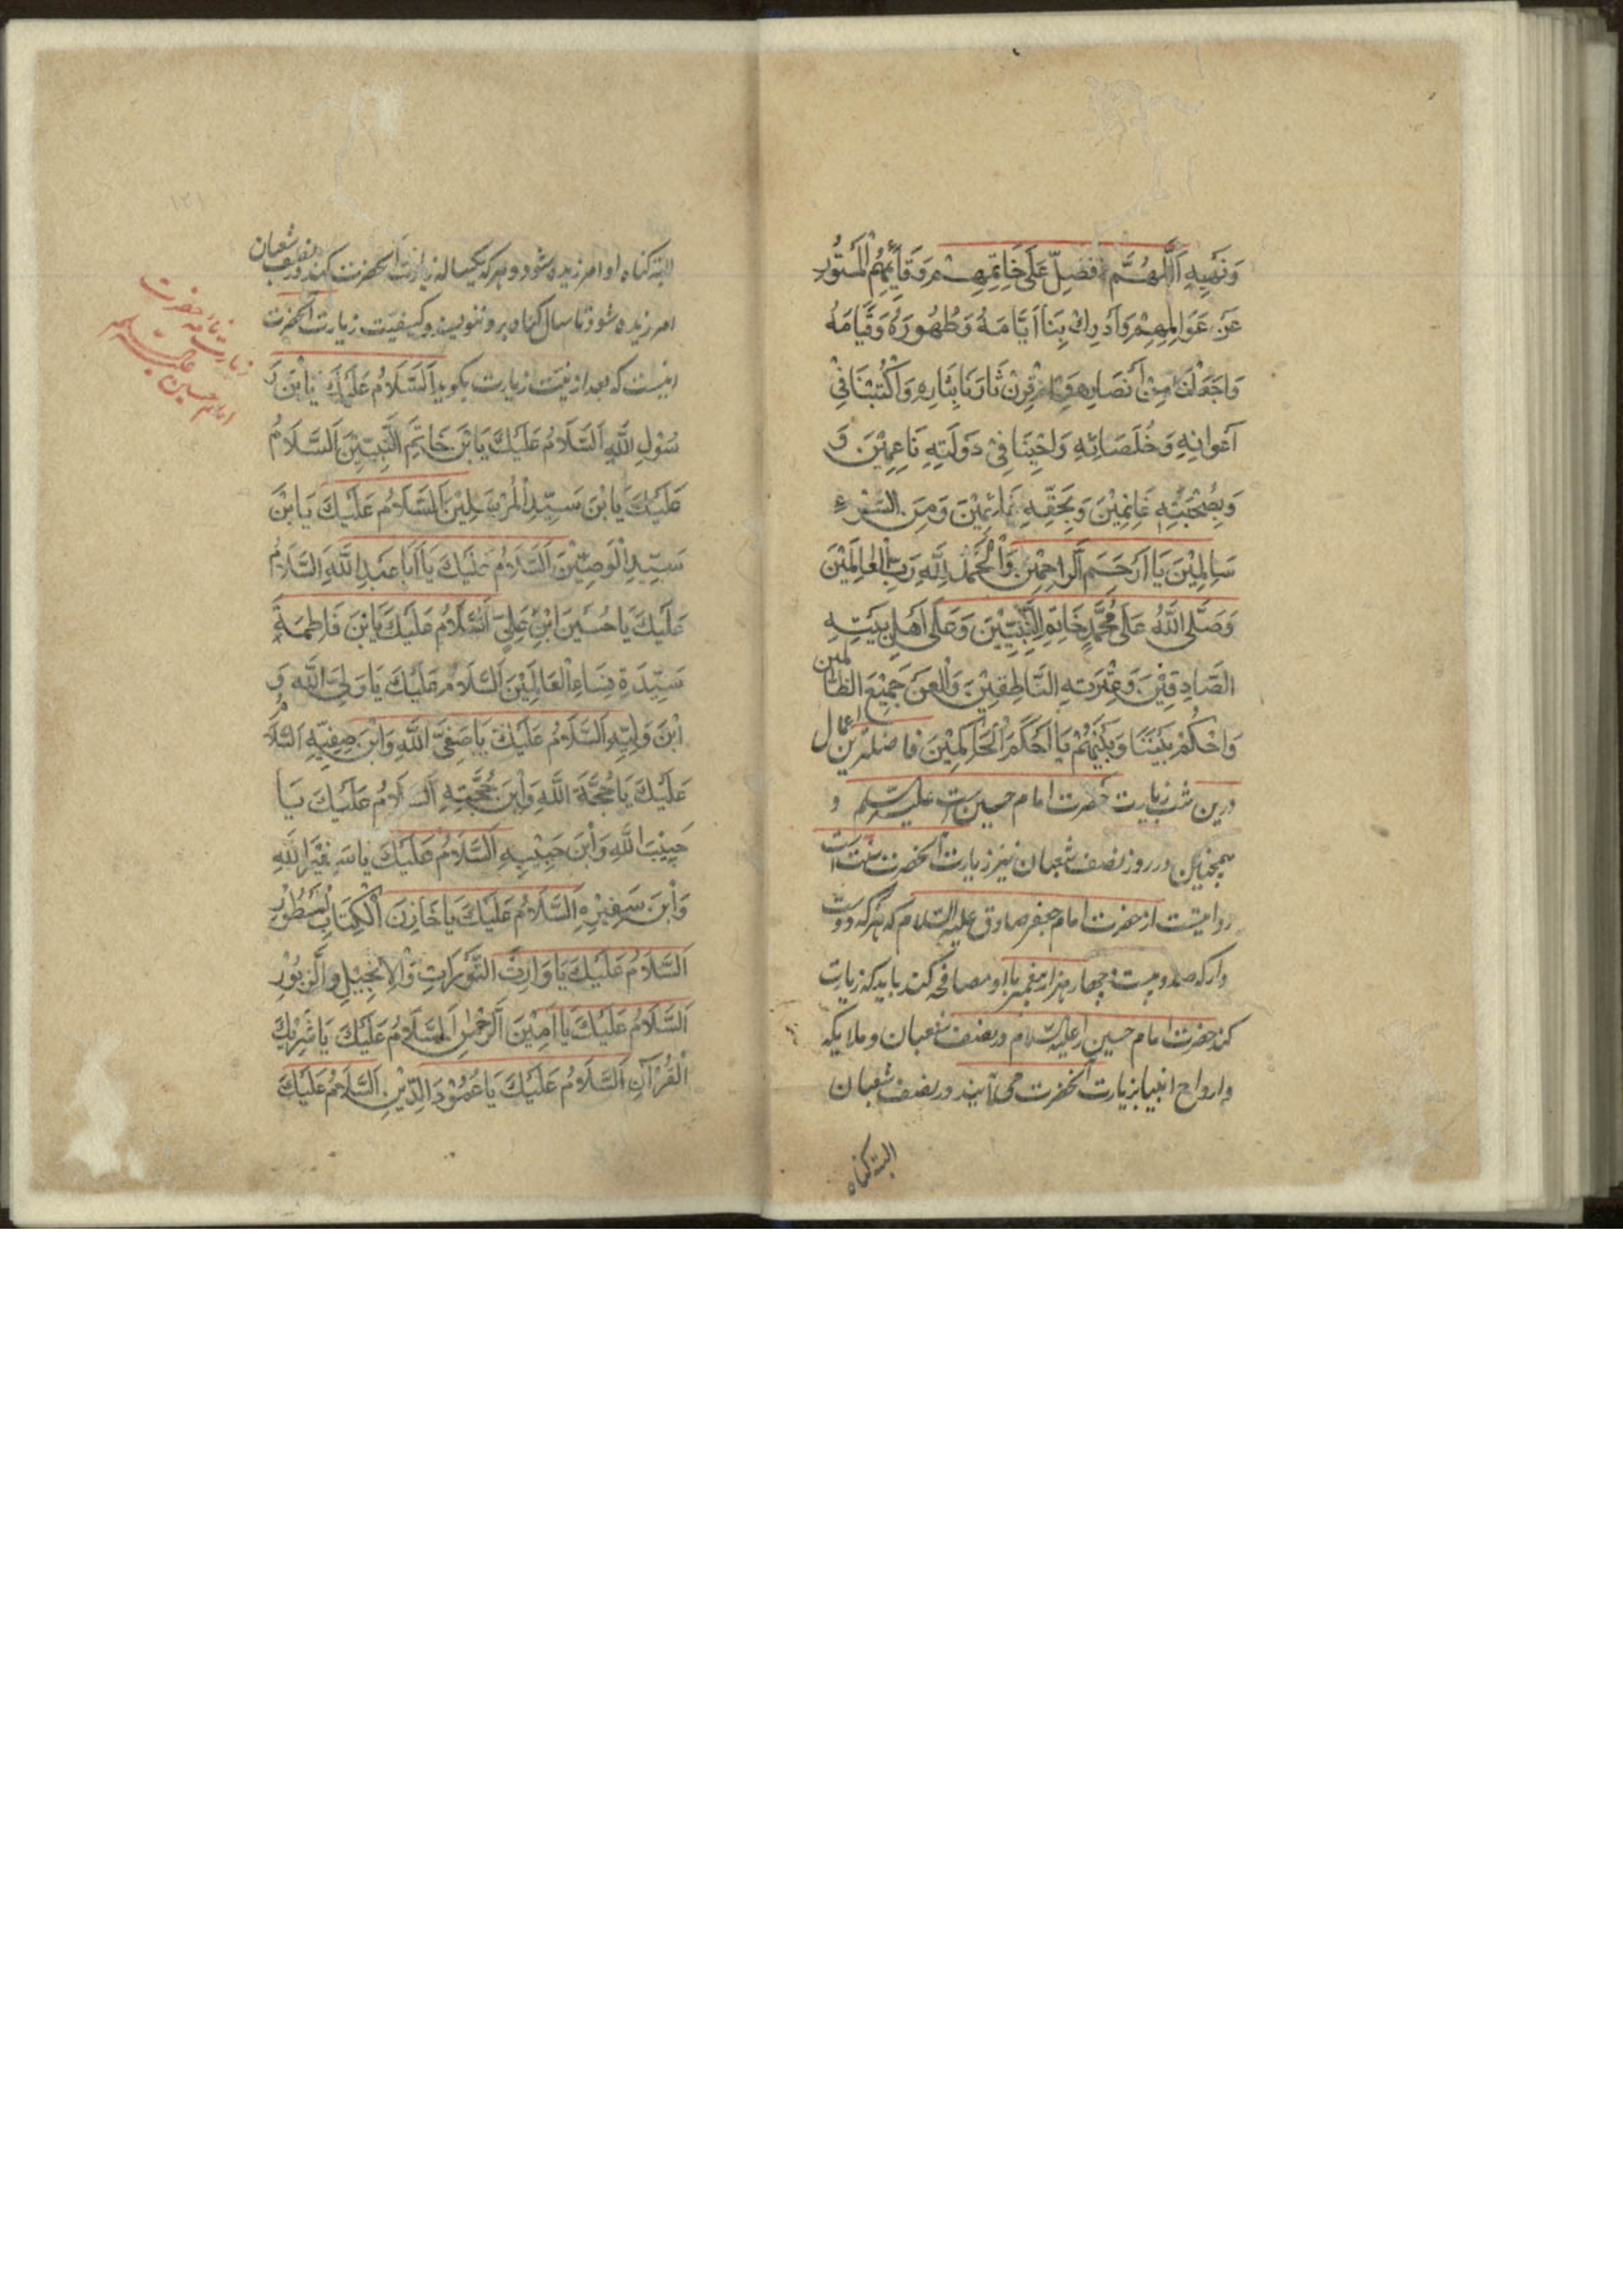 وَنَهْيِهِ اَللّٰهُمَّ فَصَلِّ عَلٰى خَاتِمِهِمْ وَقَائِمِهُمُ الْمَسْتُوْرِ
عَنْ عَوَالِمِهِمْ وَاَدْرِكْ بِنَا اَيَّامَهُ وَظُهُورَهُ وَقِيَامَهُ
وَاجْعَلْنَا مِنْ اَنْصَارِهِ وَاقْرِنْ ثَارَنَا بِثَارِهِ وَاَكْتُبْنَا فِيْ
اَعْوَانِهِ وَخُلَصَائِهِ وَاَحْيِنَا فِيْ دَوْلَتِهِ نَاعِمِيْنَ وَ
وَبِصُحْبَتِهِ غَانِمِيْنَ وَبِحَقِّهِ قَائِمِيْنَ وَمِنَ السُّوْءِ
سَالِمِيْنَ يَا اَرْحَمَ الرَّاحِمِيْنَ وَالْحَمْدُ لِلّٰهِ رَبِّ الْعَالَمِيْنَ
وَصَلَّى اللّٰهُ عَلٰى مُحَمَّدٍ خَاتِمِ النَّبِيِّيْنَ وَعَلٰى اَهْلِ بَيْتِهِ
الصَّادِقِيْنَ وَعِتْرَتِهِ النَّاطِقِيْنَ وَالْعَنْ جَمِيْعَ الظَّالمين
وَاحْكُمْ بَيْنَنَا وَبَيْنَهُمْ يَا اَحْكَمَ الْحَاكِمِيْنَ فاضلترین اعمال
درین شب زیارت حضرت امام حسین است علیه السلم و
همچنین در روز نصف شعبان نیز زیارت آنحضرت سنت است
روایتست از حضرت امام جعفر صادق علیه السلام که هر که دوست
دارد که صد و بیست و چهار هزار پیغمبر با او مصافحه کند باید که زیارت
کند حضرت امام حسین را علیه السلام در نصف شعبان و ملایکه
و ارواح انبیا بزیارت آنحضرت می آیند در نصف شعبان
البته گناه
البته گناه او امرزیده شود و هر که یکساله زیارت آنحضرت کند در نصف شعبان
امرزیده شود تا سال گناه برو ننویسند و کیفیت زیارت آنحضرت
اینست که بعد از نیت زیارت بگوید اَلسَّلَامُ عَلَيْكَ يَابْنَ رَ
سُوْلِ اللّٰهِ اَلسَّلَامُ عَلَيْكَ يَابْنَ خَاتِمِ النَّبِيّيْنَ اَلسَّلَامُ
عَلَيْكَ يَابْنَ سَيِّدِ الْمُرْسَلِيْنَ اَلسَّلَامُ عَلَيْكَ يَابْنَ
سَيِّدِ الْوَصِيّيْنَ اَلسَّلَامُ عَلَيْكَ يَا اَبَا عَبْدِ اللّٰهِ اَلسَّلَامُ
عَلَيْكَ يَا حُسَيْنَ ابْنِ عَلِيٍّ اَلسَّلَامُ عَلَيْكَ يَابْنَ فَاطِمَةَ
سَيِّدَةِ نِسَاءِ الْعَالَمِيْنَ اَلسَّلَامُ عَلَيْكَ يَا وَلِيَّ اللّٰهِ وَ
ابْنَ وَلِيِّهِ اَلسَّلَامُ عَلَيْكَ يَا صَفِيَّ اللّٰهِ وَابْنَ صَفِيِّهِ اَلسَّلَامُ
عَلَيْكَ يَا حُجَّةَ اللّٰهِ وَابْنَ حُجَّتِهِ اَلسَّلَامُ عَلَيْكَ يَا
حَبِيْبَ اللّٰهِ وَابْنَ حَبِيْبِهِ اَلسَّلَامُ عَلَيْكَ يَا سَفِيْرَ اللّٰهِ
وَابْنَ سَفِيْرِهِ اَلسَّلَامُ عَلَيْكَ يَا خَازِنَ الْكِتَابِ الْمَسْطُوْرِ
اَلسَّلَامُ عَلَيْكَ يَا وَارِثَ التَّوْرَاتِ وَالْاِنْجِيْلِ وَالزَّبُوْرِ
اَلسَّلَامُ عَلَيْكَ يَا اَمِيْنَ الرَّحْمٰنِ اَلسَّلَامُ عَلَيْكَ يَا شَرِيْكَ
الْقُرْآنِ اَلسَّلَامُ عَلَيْكَ يَا عَمُوْدَ الدِّيْنِ اَلسَّلَامُ عَلَيْكَ
زیارت نامه حضرت
امام حسین علیه السلم
۱۲۱